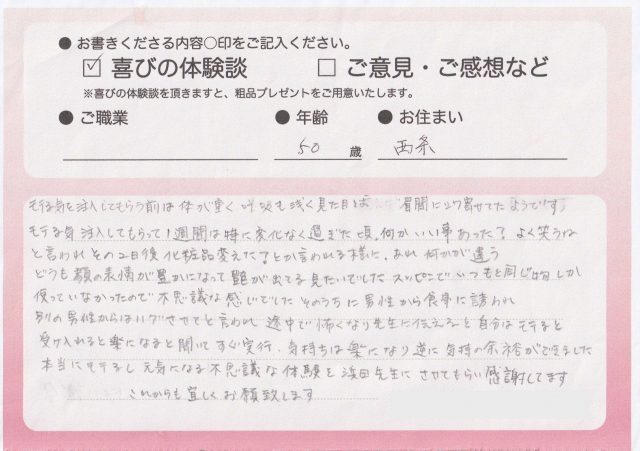 ● お書きくださる内容○印をご記入ください。
☑ 喜びの体験談 □ ご意見・ご感想など
※喜びの体験談を頂きますと、粗品プレゼントをご用意いたします。
● ご職業 ● 年齢 ● お住まい
50 歳 西条
モテる気を注入してもらう前は体が重く呼吸も浅く見た目は 眉間にシワ寄せてたようです。
モテる気注入してもらって1週間は特に変化なく過ぎた頃、何かいい事あった?よく笑うね
と言われその2日後化粧品変えた?とか言われる様に、あれ何かが違う
どうも顔の表情が豊かになって艶が出てる見たいでした スッピンでいつもと同じ物しか
使っていなかったので不思議な感じでした そのうちに男性から食事に誘われ
別の男性からはハグさせてと言われ 途中で怖くなり先生に伝えると自分はモテると
受け入れると楽になると聞いてすぐ実行、気持ちは楽になり逆に気持の余裕ができました
本当にモテるし元気になる不思議な体験を浜田先生にさせてもらい感謝してます
これからも宜しくお願致します